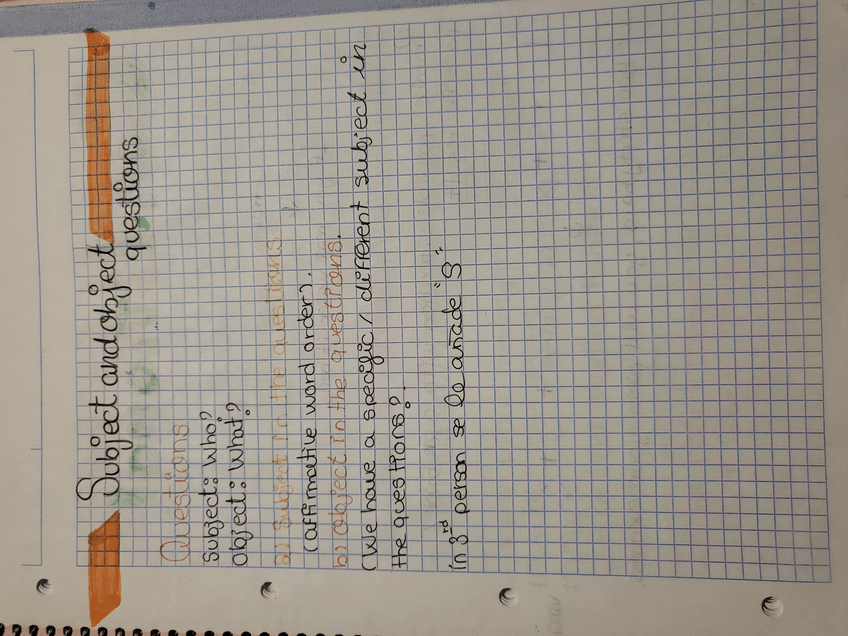 Subject and object
questions
Questions
Subject: Who?
Object: What?
a) Subject in the questions
(affirmative word order).
b) Object in the questions.
(We have a specific / different subject in
the questions?
In 3rd person se le añade "S"